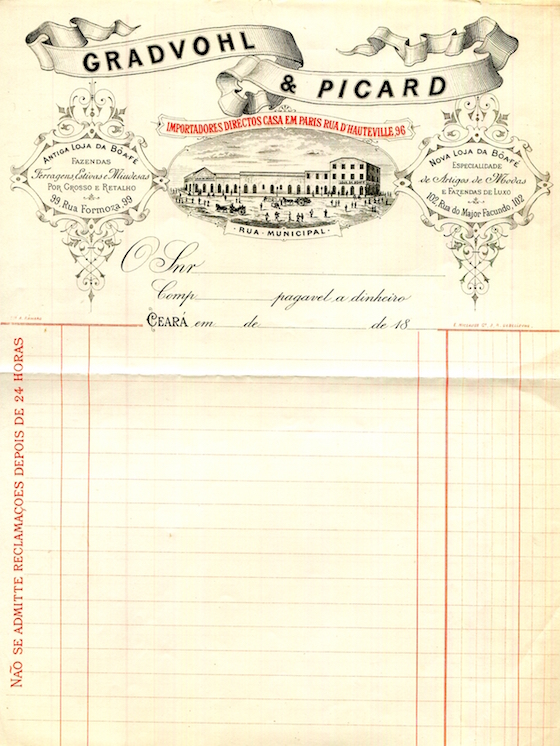 GRADVOHL
& PICARD
IMPORTADORES DIRECTOS CASA EM PARIS RUA D'HAUTEVILLE, 96
ANTIGA LOJA DA BÔAFÉ
FAZENDAS
Ferragens, Estivas e Miudesas
POR GROSSO E RETALHO
99, Rua Formoza, 99
RUA MUNICIPAL
NOVA LOJA DA BÔAFÉ
ESPECIALIDADE
de Artigos de Modas
E FAZENDAS DE LUXO
102, Rua do Major Facundo, 102
O Snr
Comp pagavel a dinheiro
CEARÁ em de de 18
NÃO SE ADMITTE RECLAMAÇOES DEPOIS DE 24 HORAS